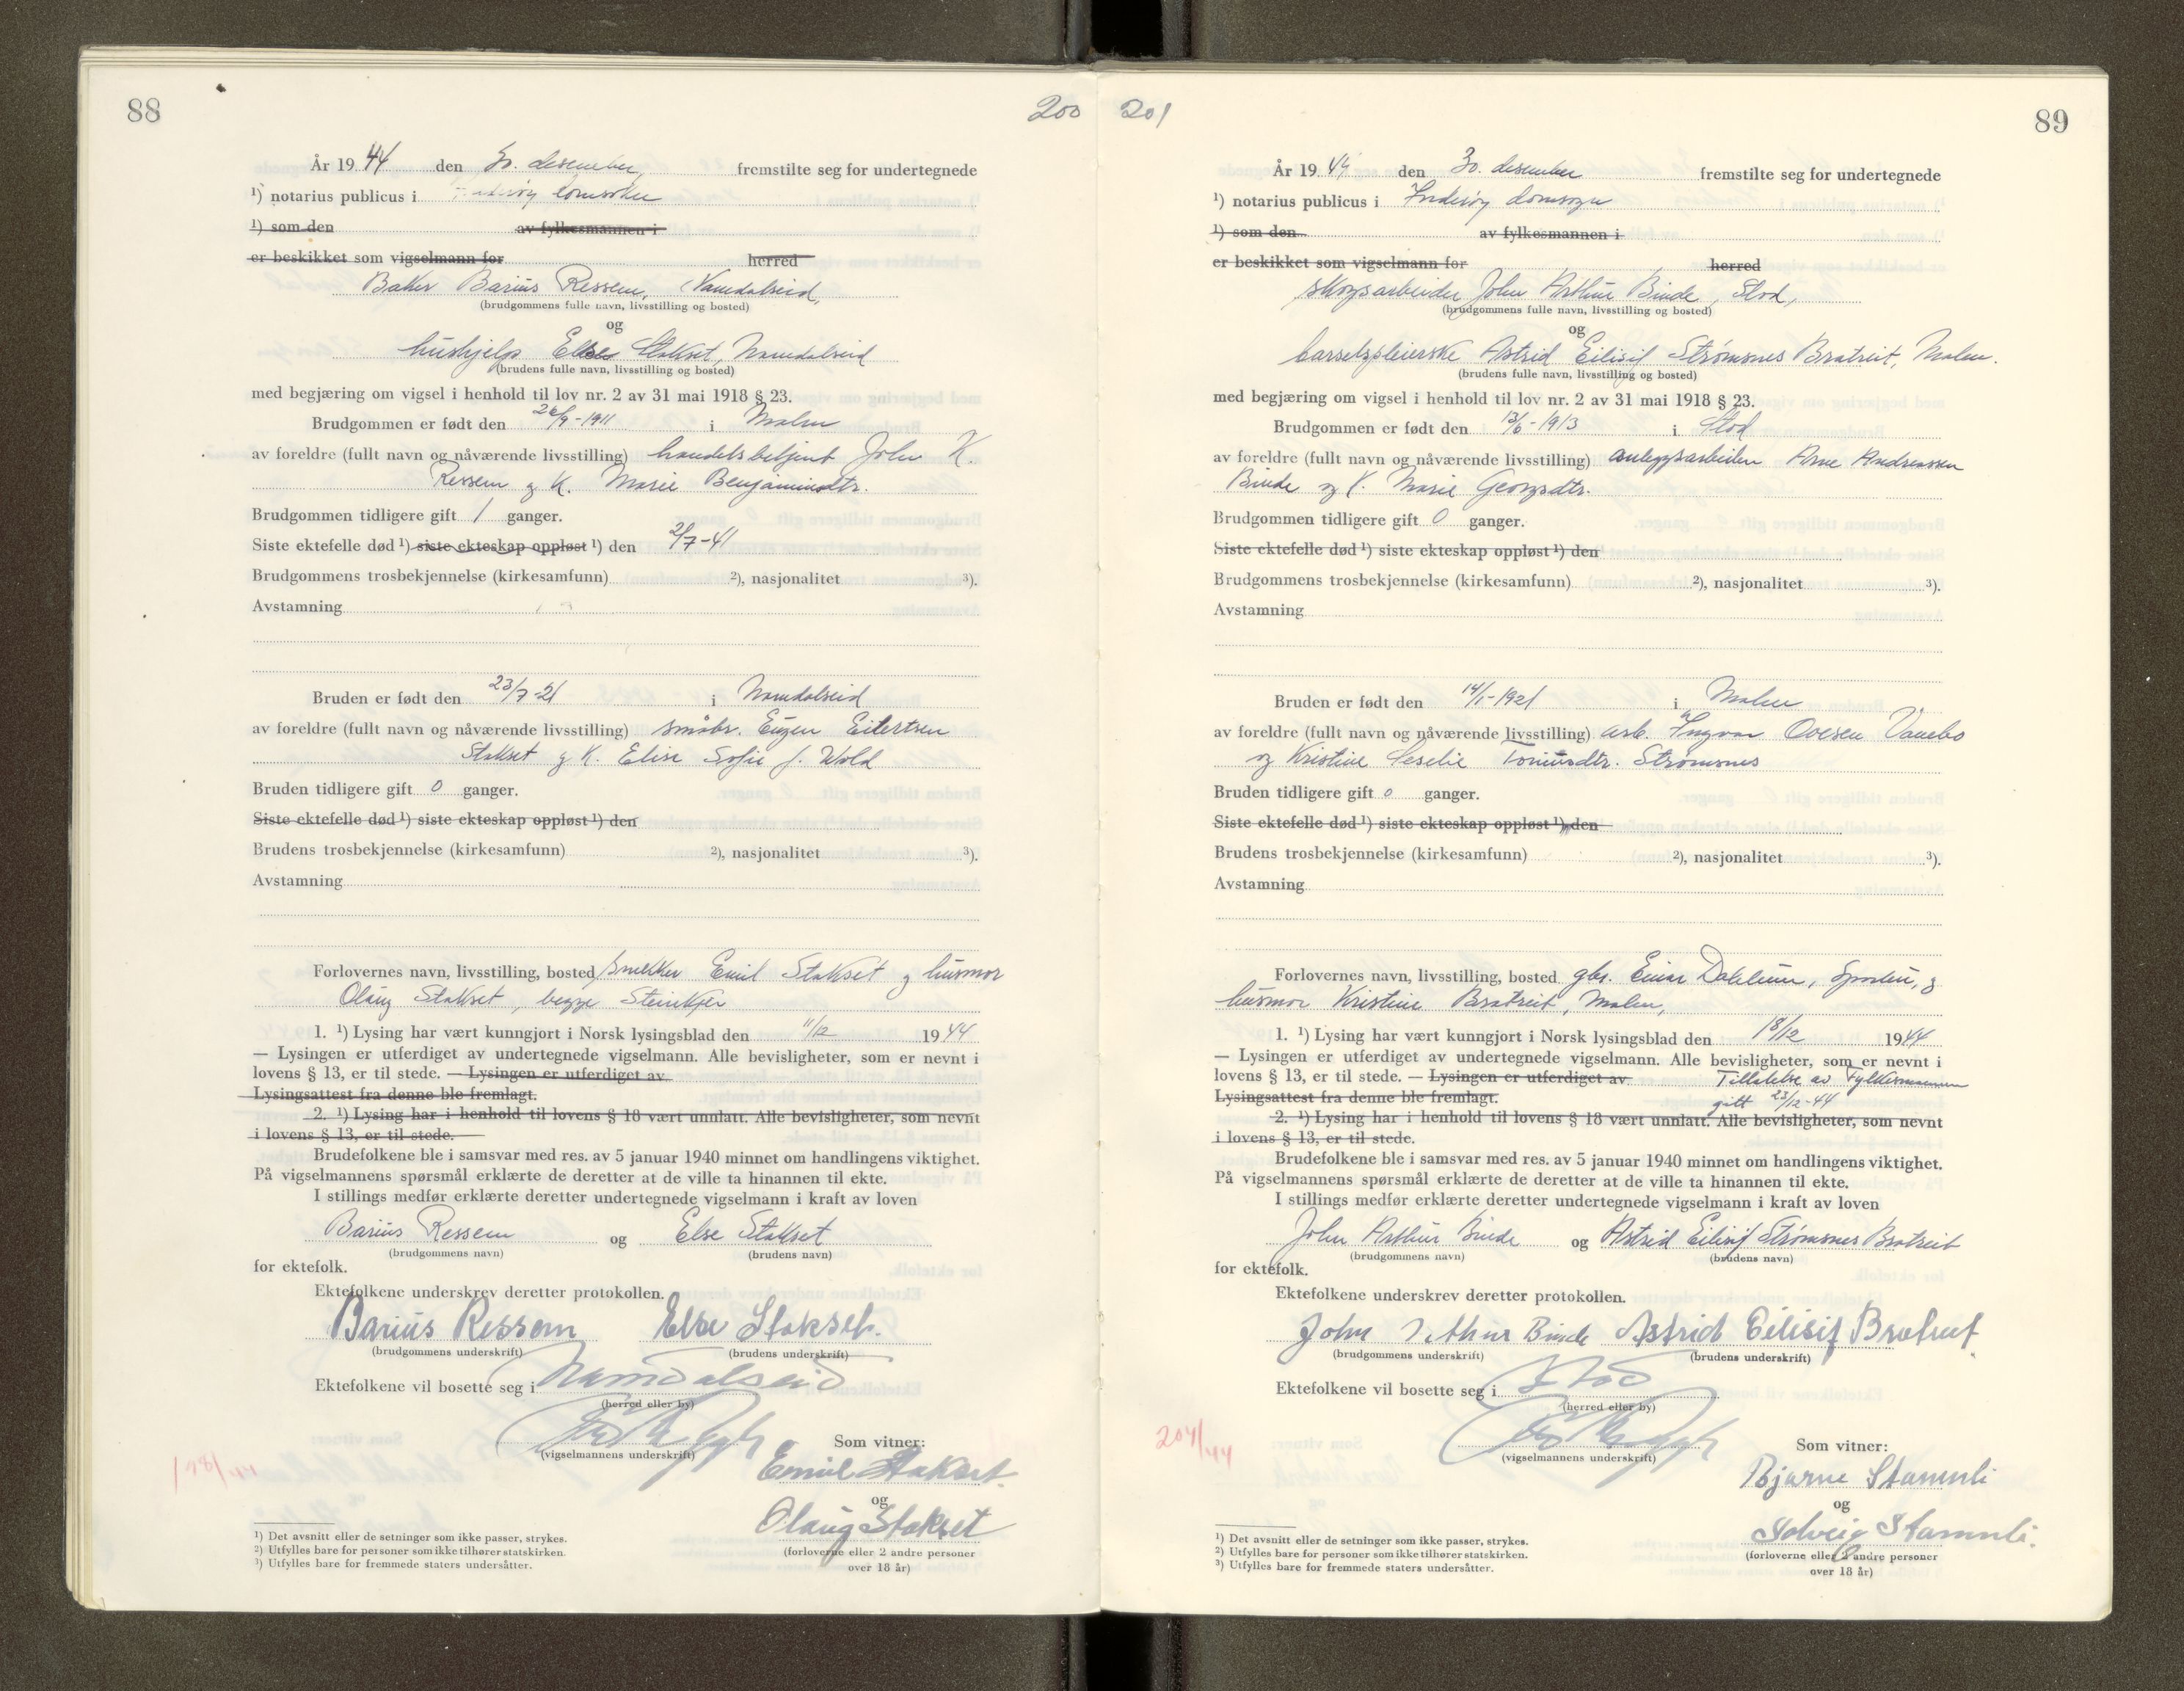 88
200
År 19 44 den 30. desember, fremstilte seg for undertegnede
¹) notarius publicus i Inderøy domsokn
¹) som den av fylkesmannen i
er beskikket som vigselmann for herred
Baker Barius Ressem, Namdalseid,
(brudgommens fulle navn, livsstilling og bosted)
og
hushjelp Else Stakset, Namdalseid
(brudens fulle navn, livsstilling og bosted)
med begjæring om vigsel i henhold til lov nr. 2 av 31 mai 1918 § 23.
Brudgommen er født den 26/9-1911 i Malm
av foreldre (fullt navn og nåværende livsstilling) handelsbetjent John K.
Ressem og K. Marie Benjaminsdtr.
Brudgommen tidligere gift 1 ganger.
Siste ektefelle død ¹) siste ekteskap oppløst ¹) den 2/7-41
Brudgommens trosbekjennelse (kirkesamfunn) ²), nasjonalitet ³).
Avstamning
Bruden er født den 23/7-21 i Namdalseid
av foreldre (fullt navn og nåværende livsstilling) småbr. Eugen Eilertsen
Stakset og K. Elise Sofie J. Wold
Bruden tidligere gift 0 ganger.
Siste ektefelle død ¹) siste ekteskap oppløst ¹) den
Brudens trosbekjennelse (kirkesamfunn) ²), nasjonalitet ³).
Avstamning
Forlovernes navn, livsstilling, bosted snekker Emil Stakset og husmor
Olaug Stakset, begge Steinkjer
1. ¹) Lysing har vært kunngjort i Norsk lysingsblad den 11/12 19 44
— Lysingen er utferdiget av undertegnede vigselmann. Alle bevisligheter, som er nevnt i
lovens § 13, er til stede. — Lysingen er utferdiget av
Lysingsattest fra denne ble fremlagt.
2. ¹) Lysing har i henhold til lovens § 18 vært unnlatt. Alle bevisligheter, som nevnt
i lovens § 13, er til stede.
Brudefolkene ble i samsvar med res. av 5 januar 1940 minnet om handlingens viktighet.
På vigselmannens spørsmål erklærte de deretter at de ville ta hinannen til ekte.
I stillings medfør erklærte deretter undertegnede vigselmann i kraft av loven
Barius Ressem og Else Stakset
(brudgommens navn) (brudens navn)
for ektefolk.
Ektefolkene underskrev deretter protokollen.
Barius Ressem Else Stakset.
(brudgommens underskrift) (brudens underskrift)
Ektefolkene vil bosette seg i Namdalseid
(herred eller by)
(vigselmannens underskrift)
Som vitner:
Emil Stakset.
og
Olaug Stakset
(forloverne eller 2 andre personer
over 18 år)
198/44
¹) Det avsnitt eller de setninger som ikke passer, strykes.
²) Utfylles bare for personer som ikke tilhører statskirken.
³) Utfylles bare for fremmede staters undersåtter.
201
89
År 19 44 den 30. desember fremstilte seg for undertegnede
¹) notarius publicus i Inderøy domsogn
¹) som den av fylkesmannen i
er beskikket som vigselmann for herred
skogsarbeider John Arthur Binde, Stod,
(brudgommens fulle navn, livsstilling og bosted)
og
barselpleierske Astrid Eilisif Strømsnes Bratreit, Malm.
(brudens fulle navn, livsstilling og bosted)
med begjæring om vigsel i henhold til lov nr. 2 av 31 mai 1918 § 23.
Brudgommen er født den 13/6-1913 i Stod
av foreldre (fullt navn og nåværende livsstilling) anleggsarbeider Arne Andreassen
Binde og K. Marie Georgsdtr.
Brudgommen tidligere gift 0 ganger.
Siste ektefelle død ¹) siste ekteskap oppløst ¹) den
Brudgommens trosbekjennelse (kirkesamfunn) ²), nasjonalitet ³).
Avstamning
Bruden er født den 14/1-1921 i Malm
av foreldre (fullt navn og nåværende livsstilling) arb. Ingvar Ovesen Vanebo
og Kristine Seselie Toniusdtr. Strømsnes
Bruden tidligere gift 0 ganger.
Siste ektefelle død ¹) siste ekteskap oppløst ¹) den
Brudens trosbekjennelse (kirkesamfunn) ²), nasjonalitet ³).
Avstamning
Forlovernes navn, livsstilling, bosted gbr. Einar Dahlum, Sparbu, og
husmor Kristine Bratreit, Malm,
1. ¹) Lysing har vært kunngjort i Norsk lysingsblad den 18/12 19 44
— Lysingen er utferdiget av undertegnede vigselmann. Alle bevisligheter, som er nevnt i
lovens § 13, er til stede. — Lysingen er utferdiget av Tillatelse av Fylkesmannen
Lysingsattest fra denne ble fremlagt. gitt 23/12-44
2. ¹) Lysing har i henhold til lovens § 18 vært unnlatt. Alle bevisligheter, som nevnt
i lovens § 13, er til stede.
Brudefolkene ble i samsvar med res. av 5 januar 1940 minnet om handlingens viktighet.
På vigselmannens spørsmål erklærte de deretter at de ville ta hinannen til ekte.
I stillings medfør erklærte deretter undertegnede vigselmann i kraft av loven
John Arthur Binde og Astrid Eilisif Strømsnes Bratreit
(brudgommens navn) (brudens navn)
for ektefolk.
Ektefolkene underskrev deretter protokollen.
John Arthur Binde Astrid Eilisif Bratreit
(brudgommens underskrift) (brudens underskrift)
Ektefolkene vil bosette seg i Stod
(herred eller by)
(vigselmannens underskrift)
Som vitner:
Bjarne Stamnli
og
Solveig Stamnli.
(forloverne eller 2 andre personer
over 18 år)
204/44
¹) Det avsnitt eller de setninger som ikke passer, strykes.
²) Utfylles bare for personer som ikke tilhører statskirken.
³) Utfylles bare for fremmede staters undersåtter.